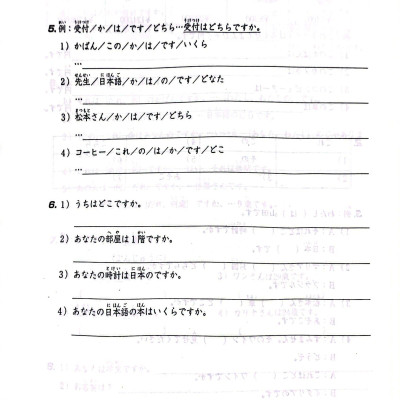 5. 例：受付／か／は／です／どちら…受付はどちらですか。
1）かばん／この／か／は／です／いくら
…
2）先生／日本語／か／は／の／です／どなた
…
3）松本さん／か／は／です／どちら
…
4）コーヒー／これ／の／は／か／です／どこ
…
6. 1）うちはどこですか。
2）あなたの部屋は1階ですか。
3）あなたの時計は日本のですか。
4）あなたの日本語の本はいくらですか。